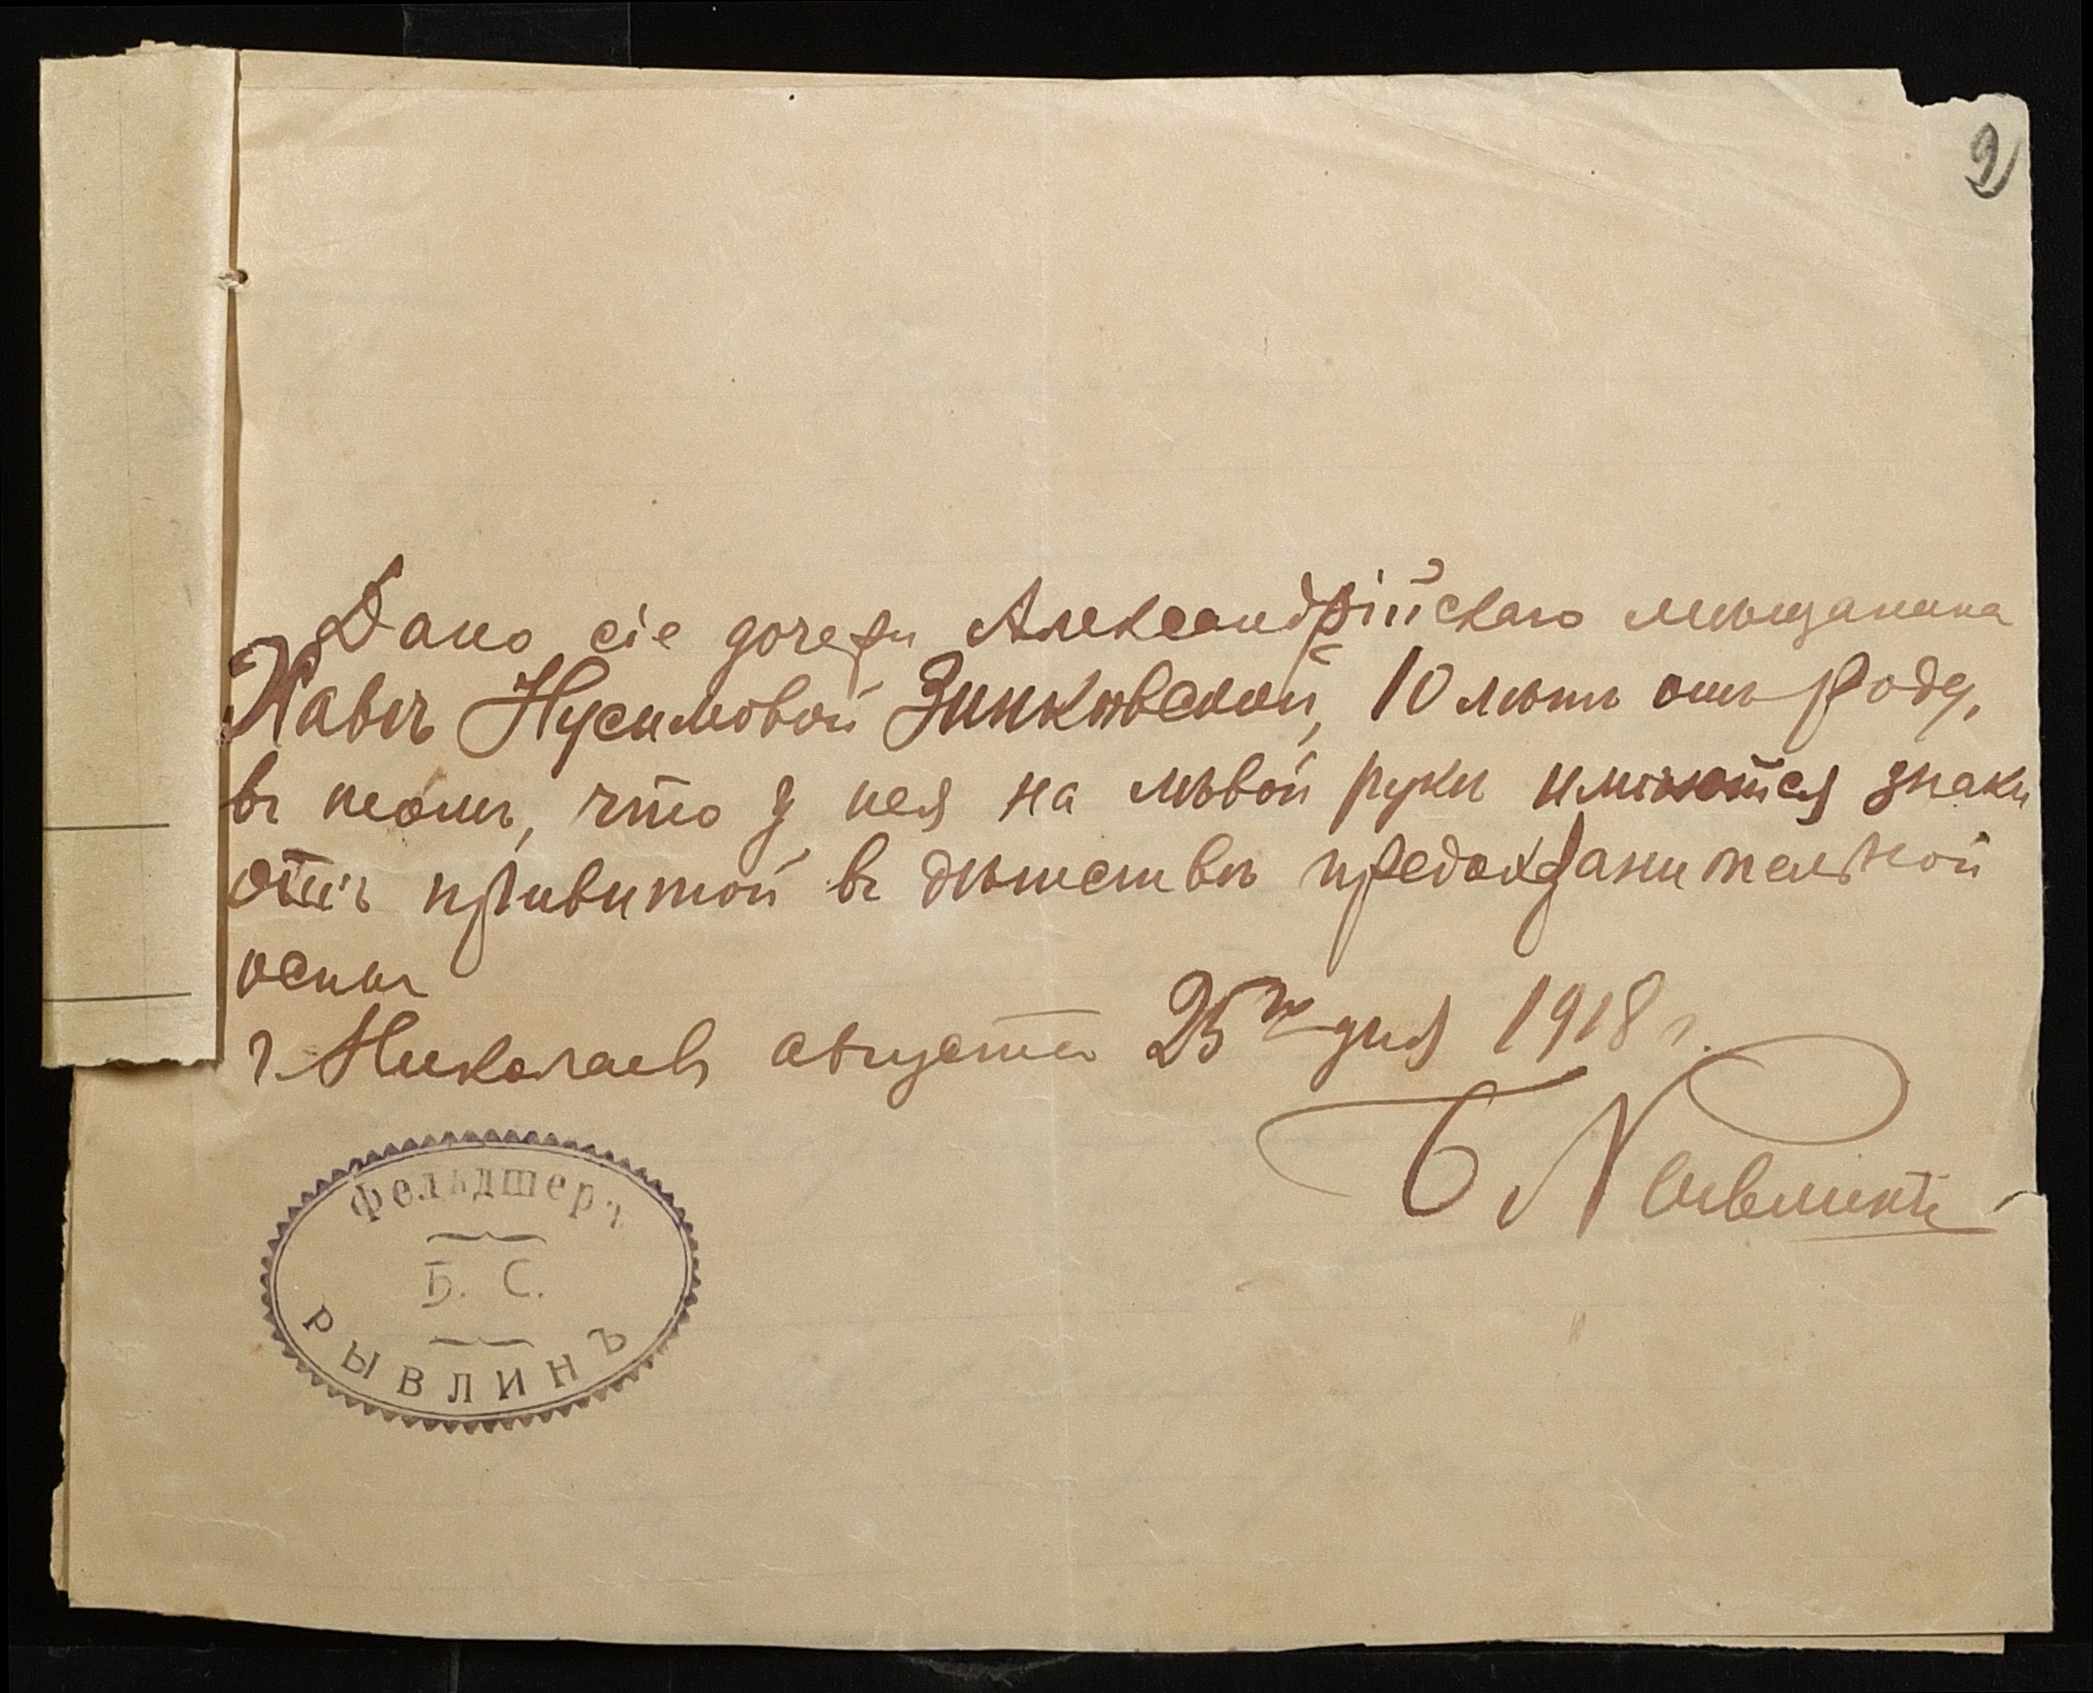 9
Дано сіе дочери Александрійскаго мѣщанина
Хавѣ Нусимовой Зиньковской, 10 лѣтъ отъ роду,
въ томъ, что у нея на лѣвой рукѣ имѣются знаки
отъ привитой въ дѣтствѣ предохранительной
оспы
г. Николаевъ августа 25го дня 1918 г.
Б Рывлинъ
Фельдшеръ
Б. С.
РЫВЛИНЪ